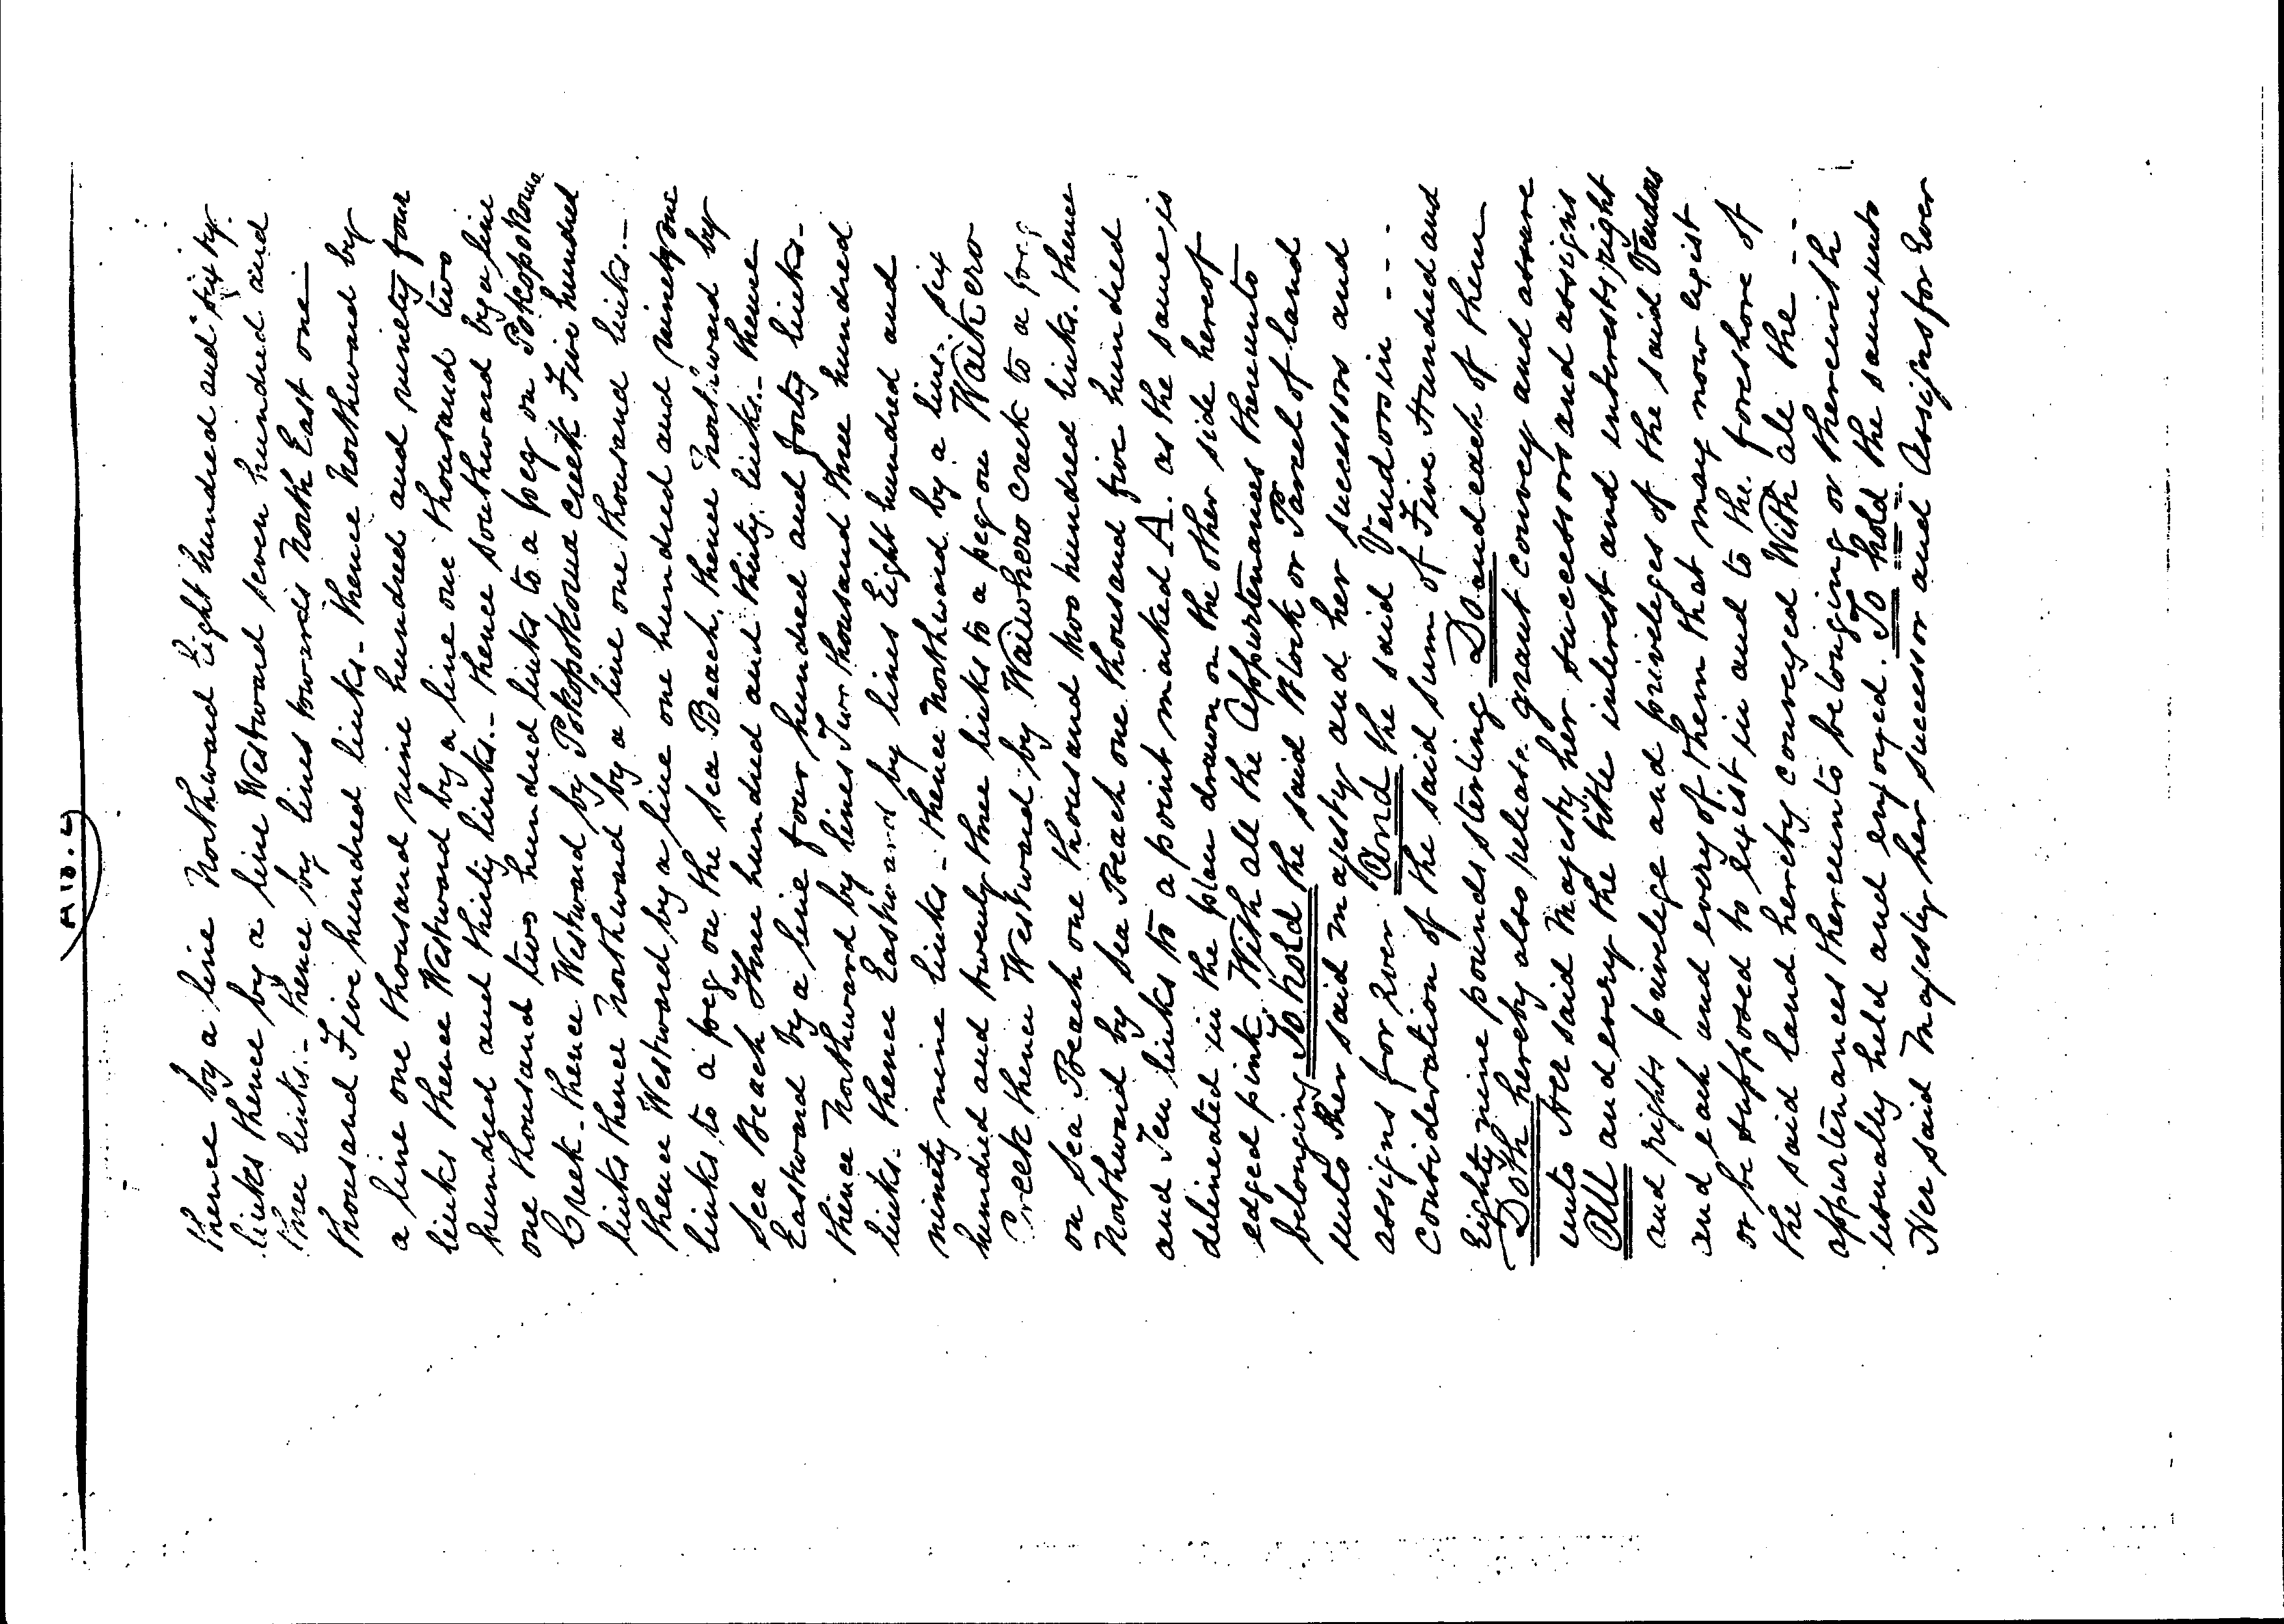 A 18. 4
thence by a line Northward Eight hundred and sixty
links thence by a line Westward seven hundred and
three links. - thence by lines towards North East one -
thousand Five hundred links. - thence Northward by
a line one thousand nine hundred and ninety four
links thence Westward by a line one thousand two
hundred and thirty links. - thence southward by a line
one thousand two hundred links to a peg on Pokopokoua
Creek. - thence Westward by Pokopokoua Creek Five hundred
links thence Northward by a line one thousand links. -
thence Westward by a line one hundred and ninety one
links to a peg on the sea Beach. thence Northward by
Sea Beach Three hundred and thirty links. - thence
Eastward by a line four hundred and forty links. -
thence Northward by lines Two thousand three hundred
links. thence Eastward by lines Eight hundred and
ninety nine links - thence Northward by a line six
hundred and twenty three links to a peg on Waikero
Creek thence Westward by Waiwhero creek to a
on Sea Beach one thousand two hundred links. thence
Northward by Sea Beach one thousand five hundred
and Ten links to a point marked A. as the same is
delineated in the plan drawn on the other side hereof
edged pink. With all the Appurtenances thereunto
belonging To hold the said Block or Parcel of Land
unto Her said Majesty and her successors and
assigns for Ever And the said Vendors in - - -
consideration of the said sum of Five Hundred and
Eighty nine pounds sterling Do and each of them
Doth hereby also release grant convey and assure
unto Her said Majesty her successors and assigns
All and every the title interest and interests right
and rights privilege and privileges of the said Vendors
and each and every of them that may now exist
or be supposed to exist in and to the foreshore of
the said land hereby conveyed With all the - -
appurtenances thereunto belonging or therewith
usually held and enjoyed. To hold the same unto
Her said Majesty her successor and Assigns for Ever